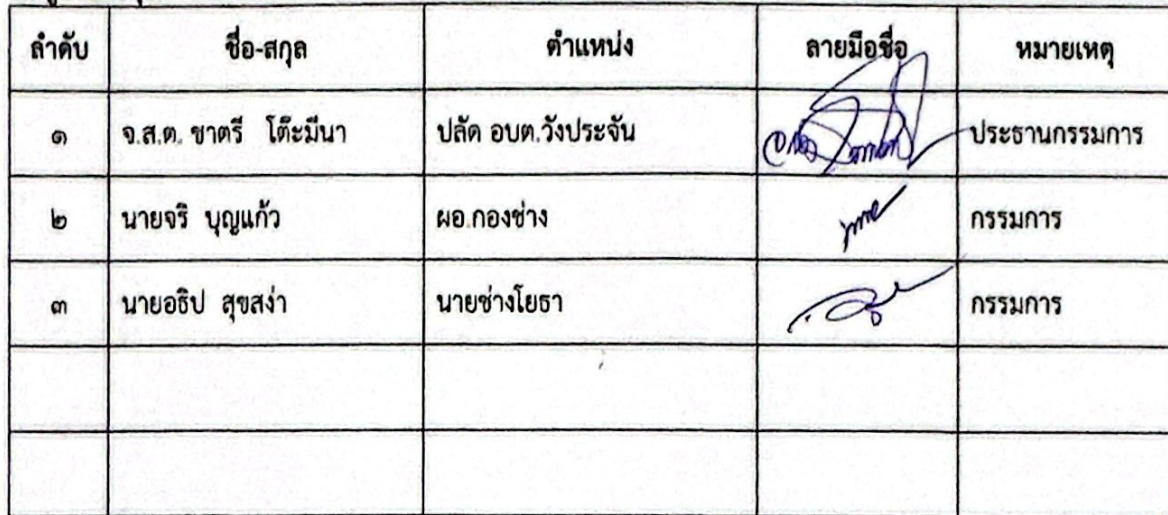 ลำดับ ชื่อ-สกุล ตำแหน่ง ลายมือชื่อ หมายเหตุ
๑ จ.ส.ต. ชาตรี โต๊ะมีนา ปลัด อบต.วังประจัน ประธานกรรมการ
๒ นายจริ บุญแก้ว ผอ.กองช่าง กรรมการ
๓ นายอธิป สุขสง่า นายช่างโยธา กรรมการ